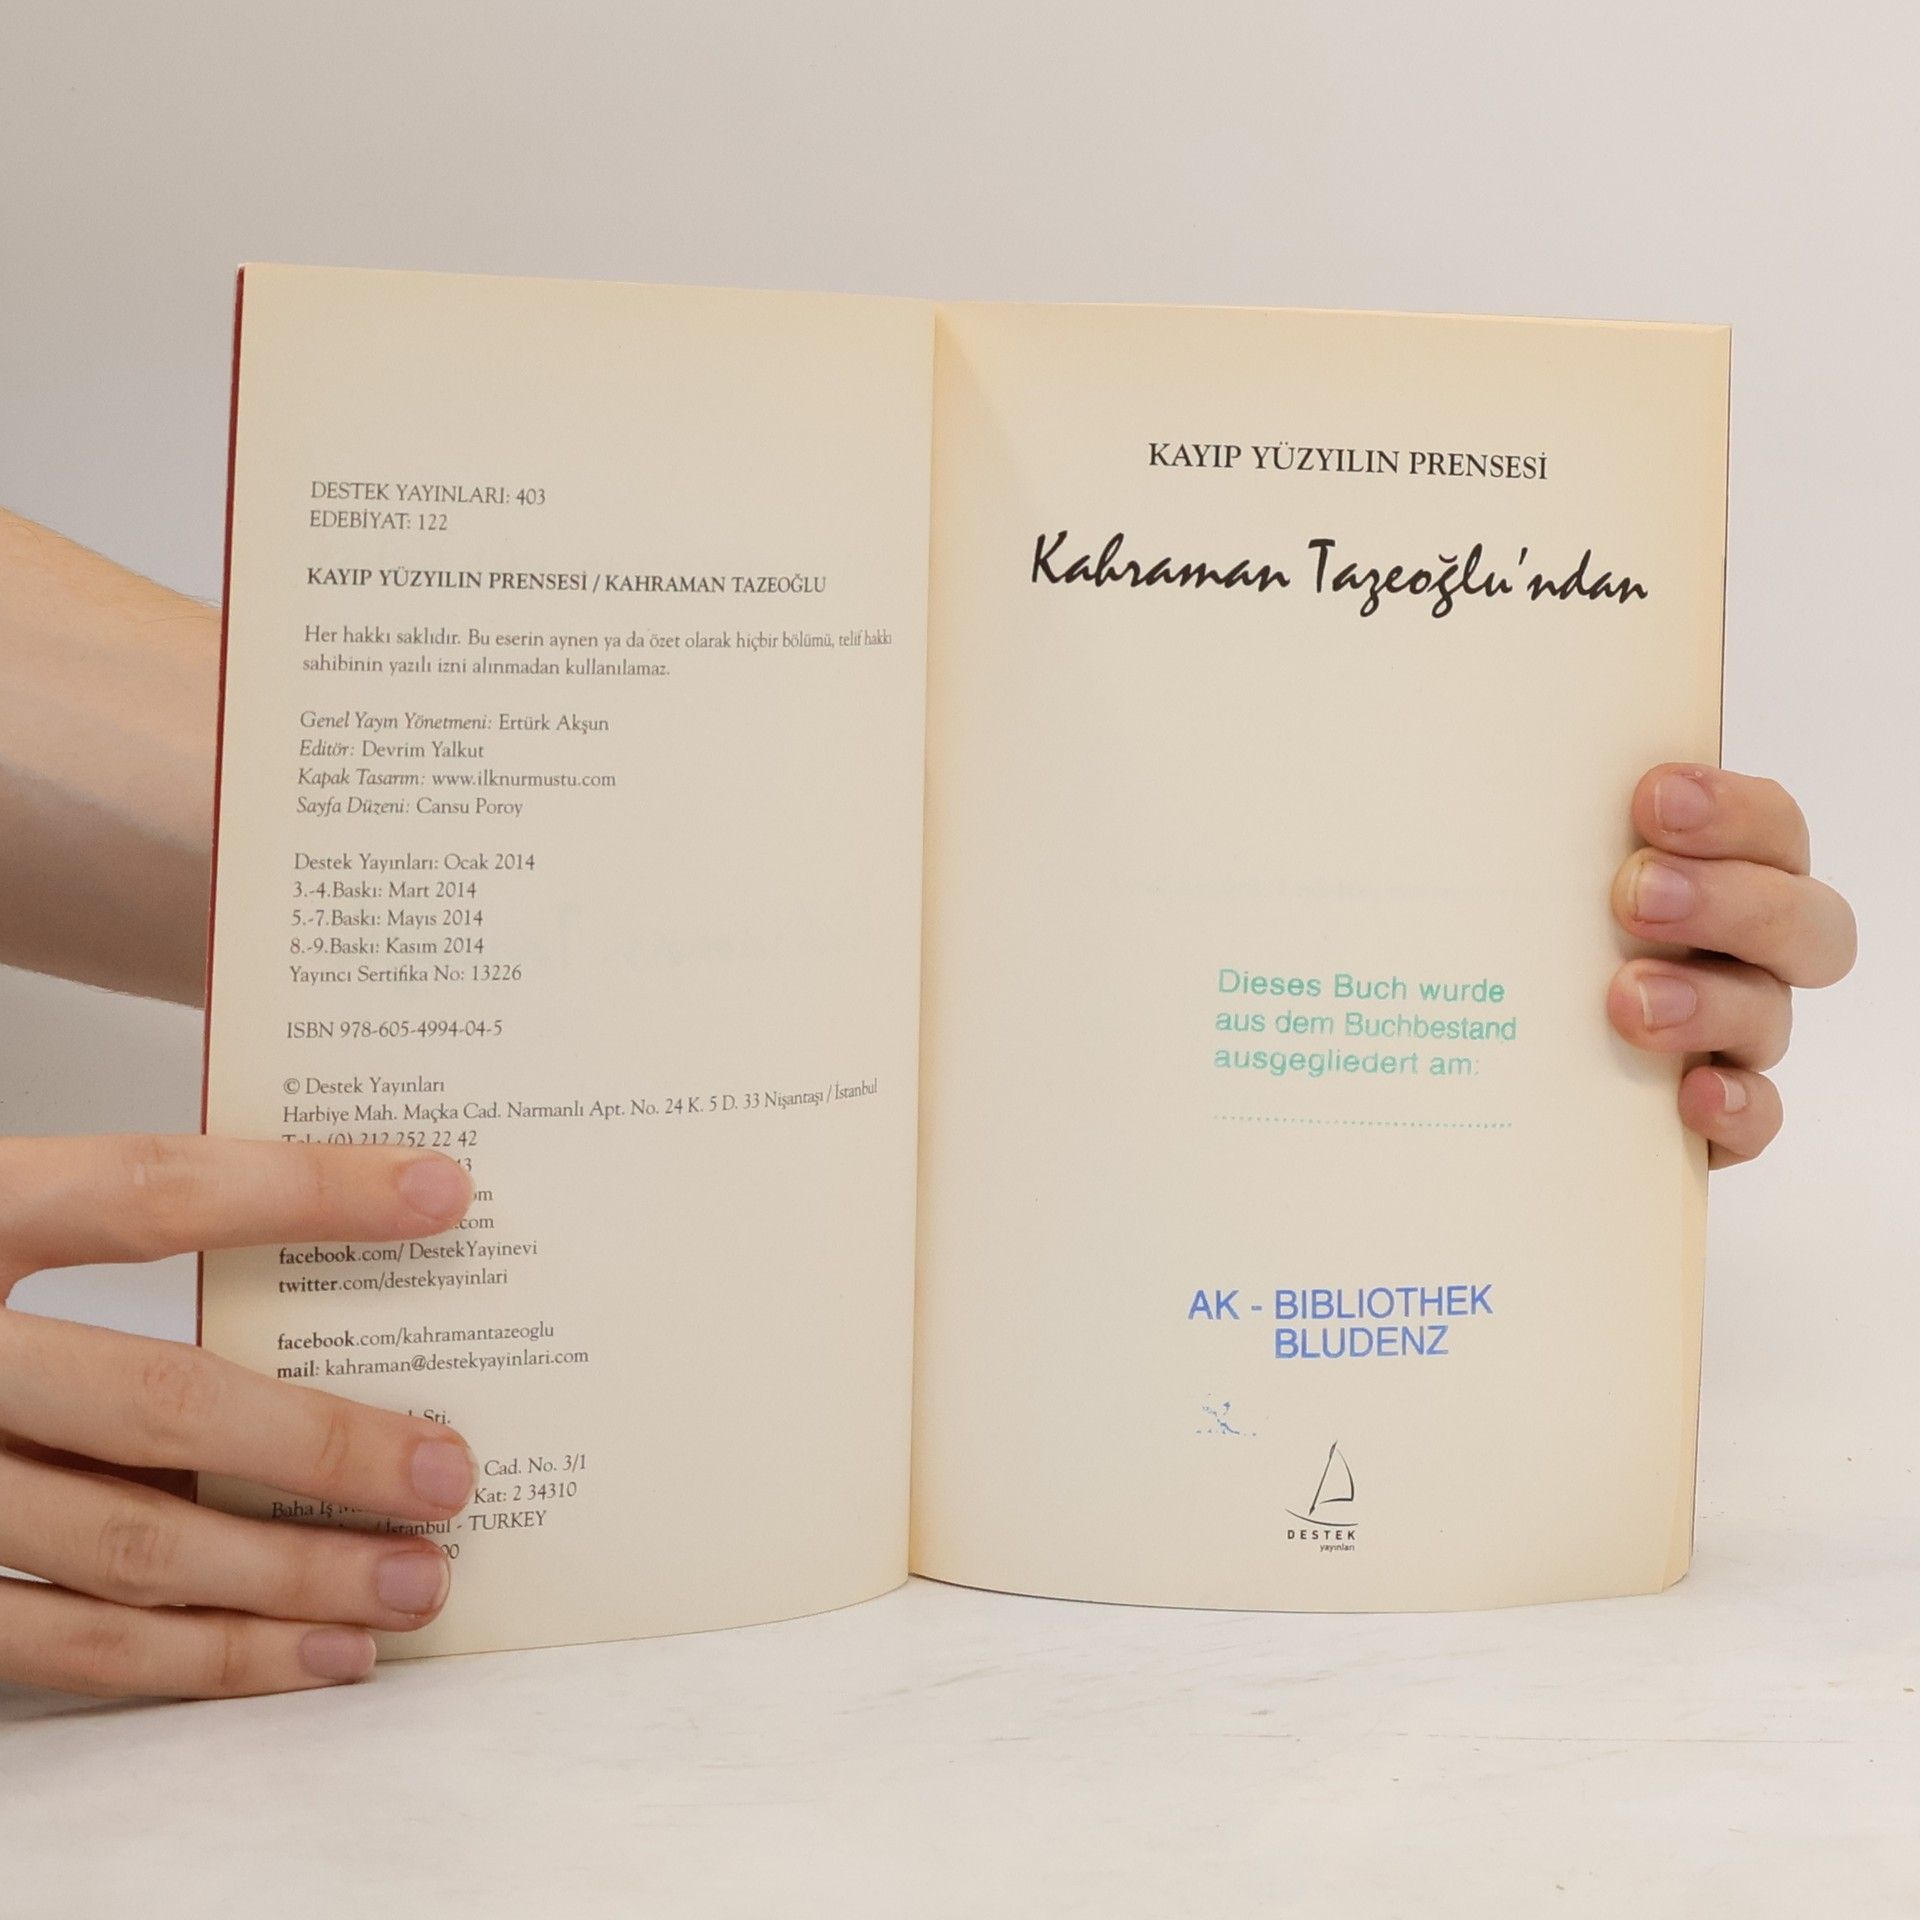 DESTEK YAYINLARI: 403
EDEBİYAT: 122
KAYIP YÜZYILIN PRENSESİ / KAHRAMAN TAZEOĞLU
Her hakkı saklıdır. Bu eserin aynen ya da özet olarak hiçbir bölümü, telif hakkı
sahibinin yazılı izni alınmadan kullanılamaz.
Genel Yayın Yönetmeni: Ertürk Akşun
Editör: Devrim Yalkut
Kapak Tasarım: www.ilknurmustu.com
Sayfa Düzeni: Cansu Poroy
Destek Yayınları: Ocak 2014
3.-4.Baskı: Mart 2014
5.-7.Baskı: Mayıs 2014
8.-9.Baskı: Kasım 2014
Yayıncı Sertifika No: 13226
ISBN 978-605-4994-04-5
© Destek Yayınları
Harbiye Mah. Maçka Cad. Narmanlı Apt. No. 24 K. 5 D. 33 Nişantaşı / İstanbul
Tel.: (0) 212 252 22 42
facebook.com/ DestekYayinevi
twitter.com/destekyayinlari
facebook.com/kahramantazeoglu
mail: kahraman@destekyayinlari.com
Şti.
Cad. No. 3/1
Baha İş Kat: 2 34310
/ İstanbul - TURKEY
KAYIP YÜZYILIN PRENSESİ
Kahraman Tazeoğlu'ndan
Dieses Buch wurde
aus dem Buchbestand
ausgegliedert am:
AK - BIBLIOTHEK
BLUDENZ
DESTEK
yayınları